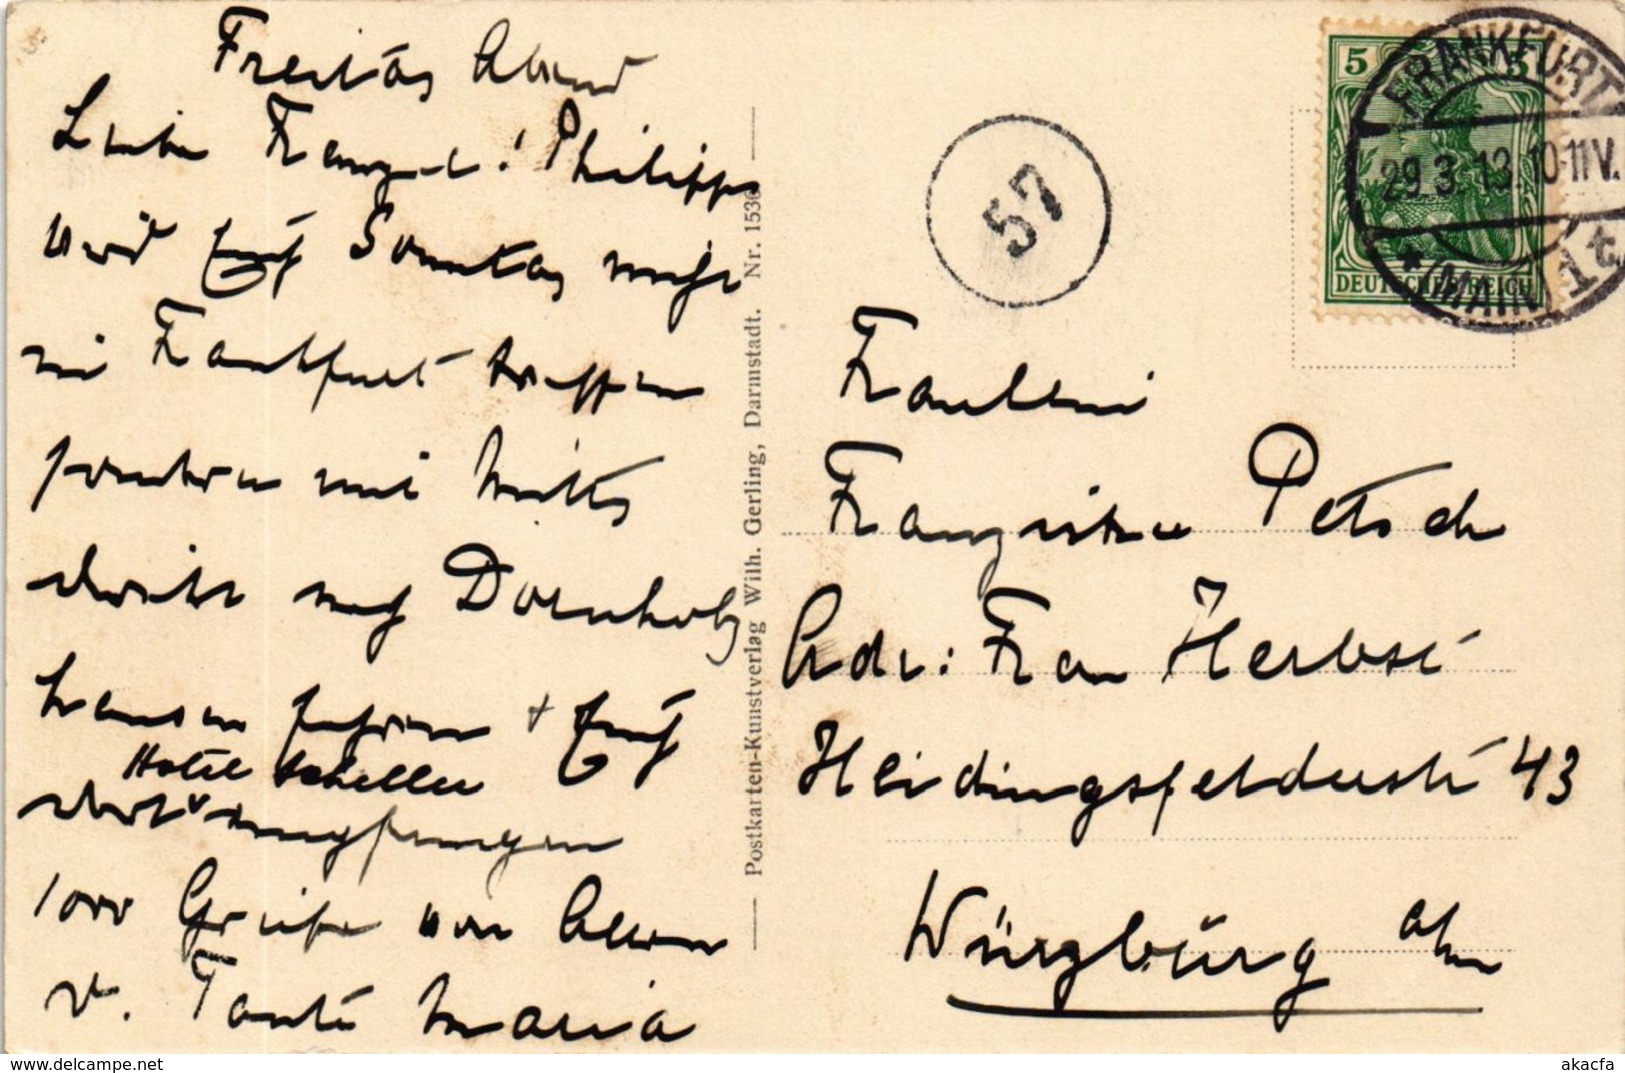 Freitag Abend
Liebe Franzel! Philipp
wird Euch Sonntag nicht
in Frankfurt treffen
sondern mit
direkt nach Dornholz
hausen fahren + Euch
Hotel Scheller
dort empfangen
1000 Grüße von Allen
v. Tante Maria
Postkarten-Kunstverlag Wilh. Gerling, Darmstadt. Nr. 1536
57
5 5
DEUTSCHES REICH
FRANKFURT
29.3.13.10-11V.
* (MAIN) 1 t.
Fräulein
Franziska Petsch
Adr: Frau Herbst
Heidingsfelderstr 43
Würzburg a/m
akacfa